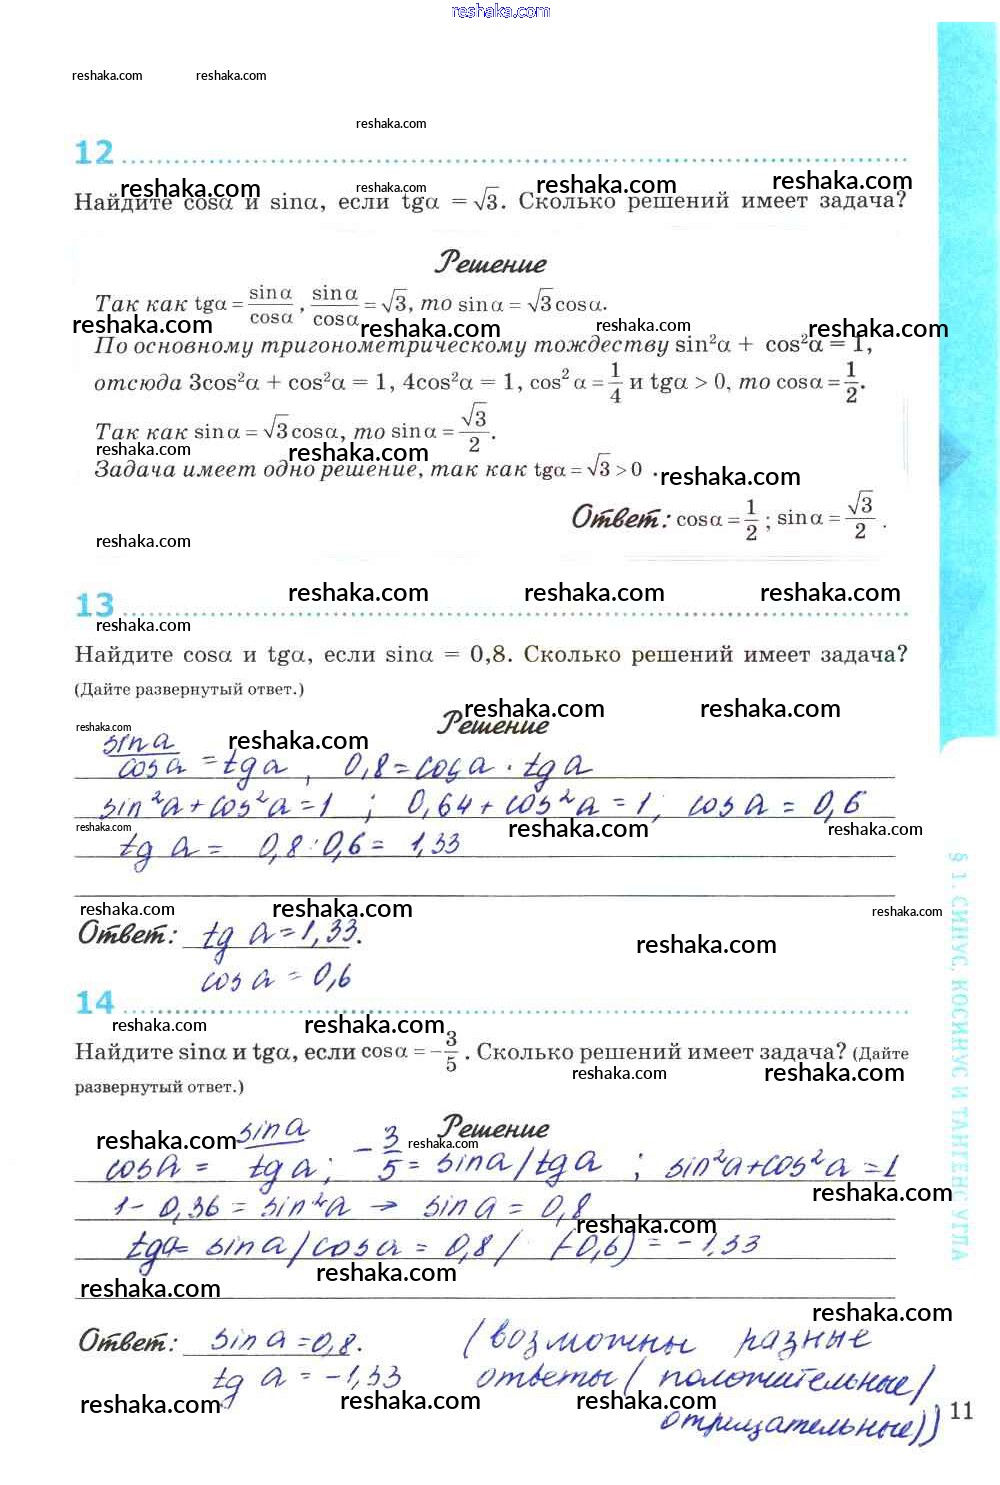 reshaka.com
reshaka.com reshaka.com
reshaka.com
12
reshaka.com reshaka.com reshaka.com reshaka.com
Найдите cosα и sinα, если tgα = √3. Сколько решений имеет задача?
Решение
Так как tgα = sinα/cosα, sinα/cosα = √3, то sinα = √3cosα.
reshaka.com reshaka.com reshaka.com reshaka.com
По основному тригонометрическому тождеству sin²α + cos²α = 1,
отсюда 3cos²α + cos²α = 1, 4cos²α = 1, cos²α = 1/4 и tgα > 0, то cosα = 1/2.
Так как sinα = √3cosα, то sinα = √3/2.
reshaka.com reshaka.com
Задача имеет одно решение, так как tgα = √3 > 0 .
reshaka.com
Ответ: cosα = 1/2 ; sinα = √3/2 .
reshaka.com
13
reshaka.com reshaka.com reshaka.com
reshaka.com
Найдите cosα и tgα, если sinα = 0,8. Сколько решений имеет задача?
(Дайте развернутый ответ.)
reshaka.com reshaka.com
Решение
reshaka.com reshaka.com
sin a/cos a = tg a, 0,8 = cos a · tg a
sin²a + cos²a = 1 ; 0,64 + cos²a = 1, cos a = 0,6
reshaka.com reshaka.com reshaka.com
tg a = 0,8 : 0,6 = 1,33
reshaka.com reshaka.com reshaka.com
Ответ: tg a = 1,33.
reshaka.com
cos a = 0,6
14
reshaka.com reshaka.com
Найдите sinα и tgα, если cosα = −3/5 . Сколько решений имеет задача? (Дайте
reshaka.com reshaka.com
развернутый ответ.)
Решение
reshaka.com reshaka.com
cos a = sin a/tg a ; −3/5 = sin a/tg a ; sin²a + cos²a = 1
reshaka.com
1 − 0,36 = sin²a → sin a = 0,8
reshaka.com
tg a = sin a/cos a = 0,8/(−0,6) = −1,33
reshaka.com reshaka.com
reshaka.com
Ответ: sin a = 0,8. (возможны разные
tg a = −1,33 ответы (положительные/
reshaka.com reshaka.com reshaka.com
отрицательные))
11
§ 1. СИНУС, КОСИНУС И ТАНГЕНС УГЛА